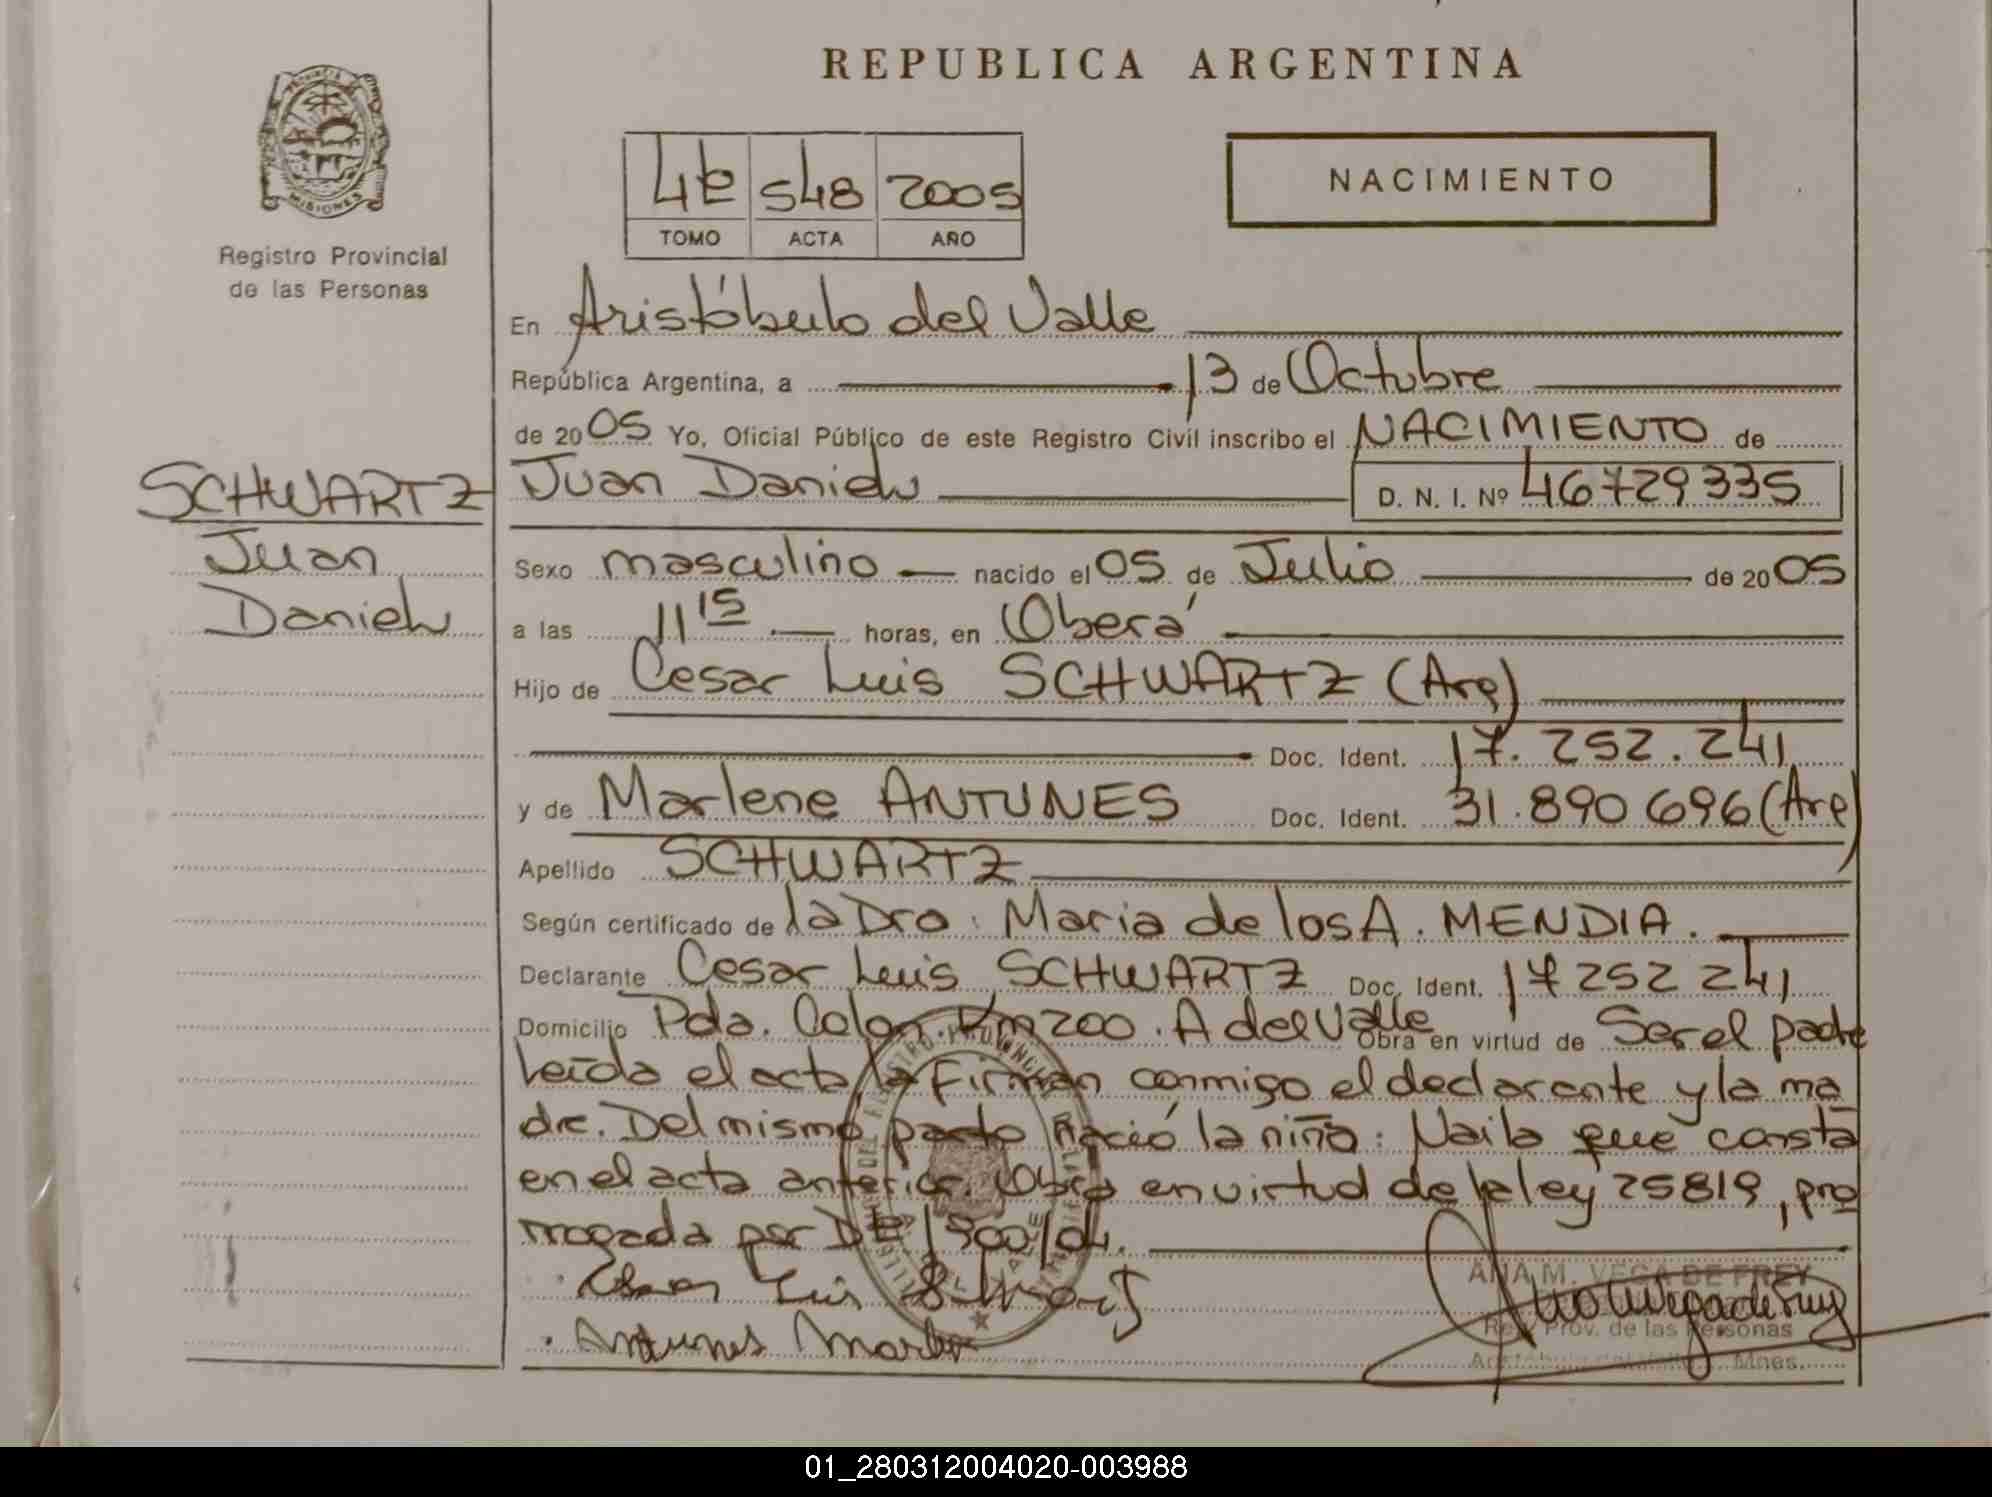 REPUBLICA ARGENTINA
MISIONES
Registro Provincial
de las Personas
4t 548 2005
TOMO ACTA AÑO
NACIMIENTO
En Aristóbulo del Valle
República Argentina, a 13 de Octubre
de 2005 Yo, Oficial Público de este Registro Civil inscribo el NACIMIENTO de
SCHWARTZ
Juan
Daniel
Juan Daniel D. N. I. Nº 46729335
Sexo masculino nacido el 05 de Julio de 2005
a las 11 15 horas, en Oberá
Hijo de Cesar Luis SCHWARTZ (Arg)
Doc. Ident. 17.252.241
y de Marlene ANTUNES Doc. Ident. 31.890 696 (Arg)
Apellido SCHWARTZ
Según certificado de la Dra. Maria de los A. MENDIA.
Declarante Cesar Luis SCHWARTZ Doc. Ident. 17 252 241
Domicilio Pda. Colon Km 200. A del Valle Obra en virtud de Ser el padre
Leída el acta la firman conmigo el declarante y la ma
dre. Del mismo parto nació la niña: Naila que consta
en el acta anterior. Obra en virtud de la ley 25819, pro
rrogada por 1500/04.
Cesar Luis
Antunes
ANA M. VEGA DE FREY
Reg. Prov. de las Personas
Aristóbulo del Valle Mnes.
01_280312004020-003988